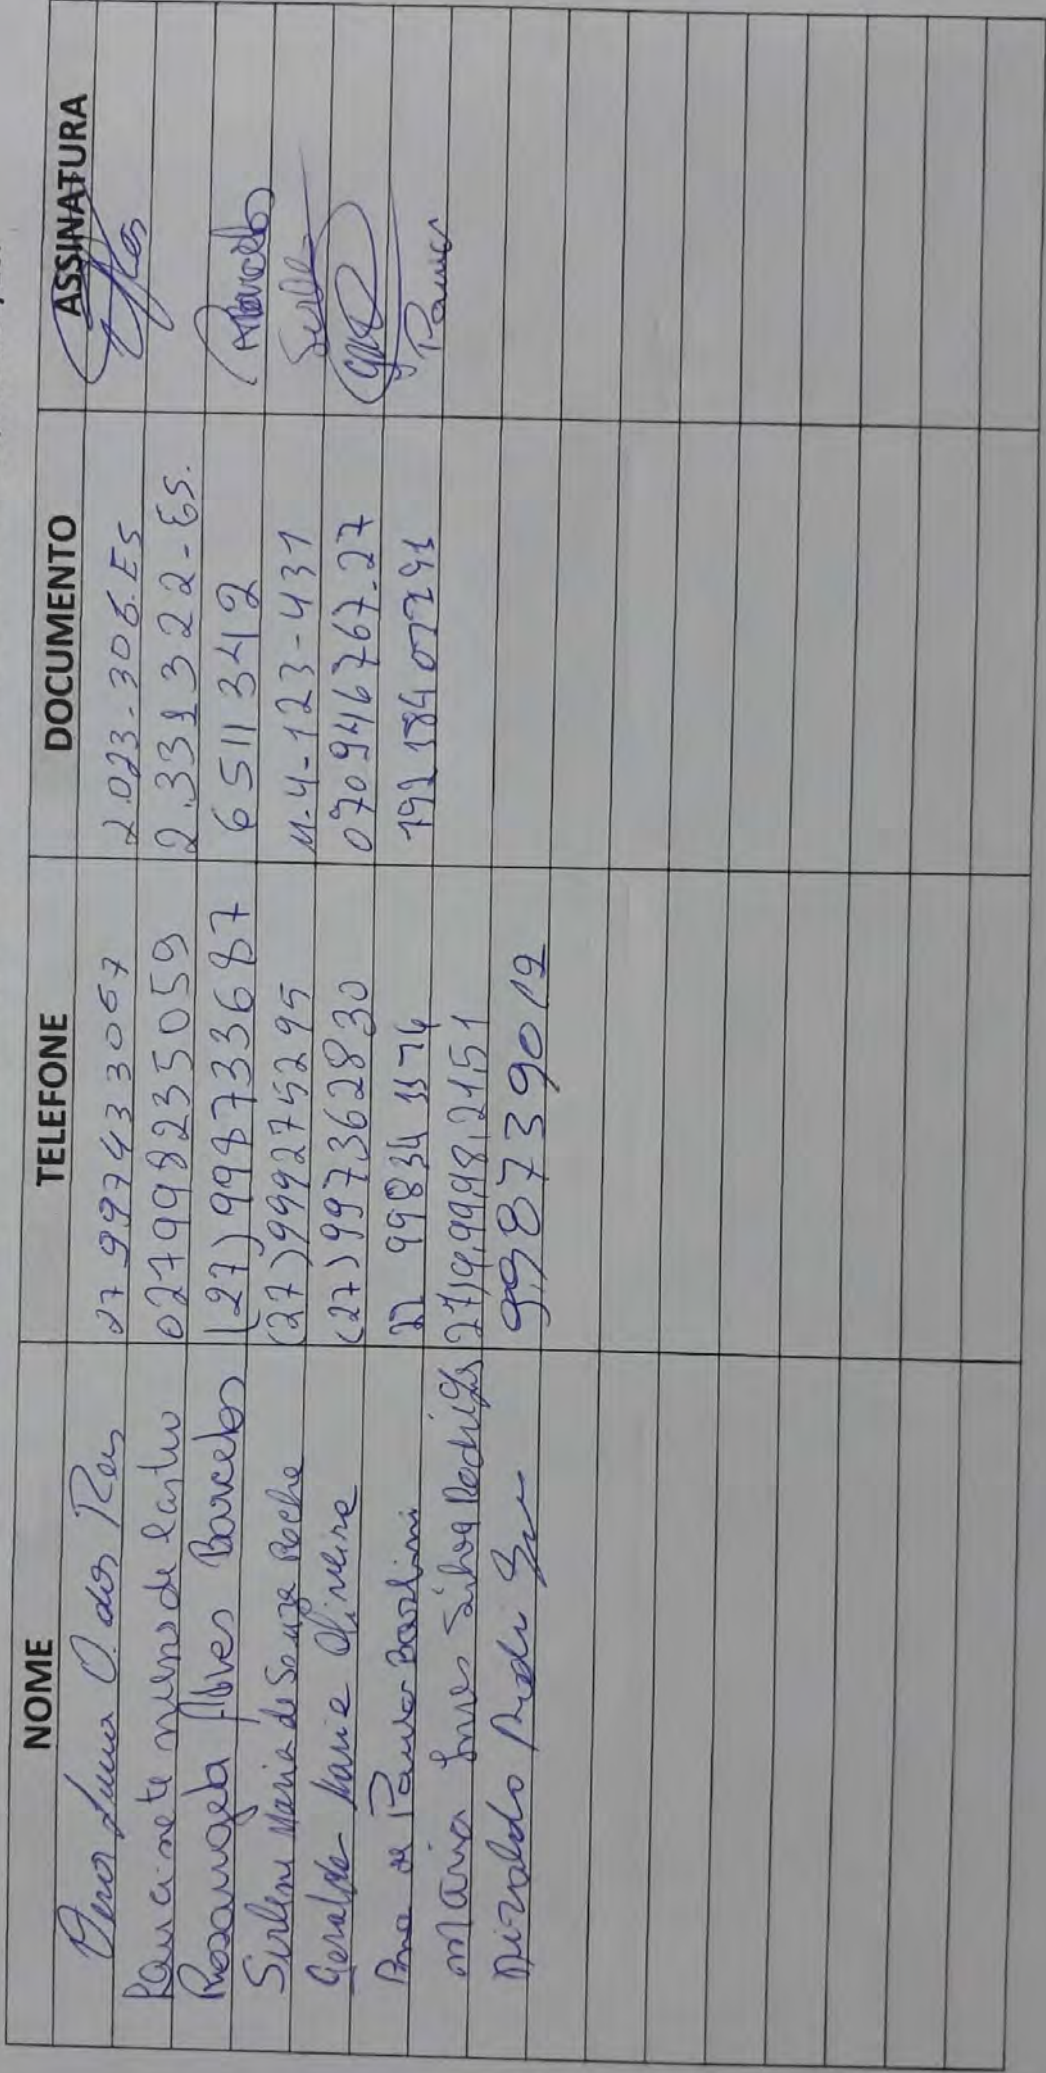 NOME TELEFONE DOCUMENTO ASSINATURA
Vera Lucia O. dos Reis 27 997433067 2.023-306.ES
de Castro 027998235059 2.331322-ES.
Rosangela Alves Barcelos (27) 998733687 6511342 Barcelos
Sirlene Maria de Souza Rocha (27) 999275295 M-4-123-431
Geralda Maria Oliveira (27) 997362830 070946767-27
Ana de Paula 27 99834 1174
Maria Silva Rodrigues 27)9.9998,2151
Nivaldo 998739012